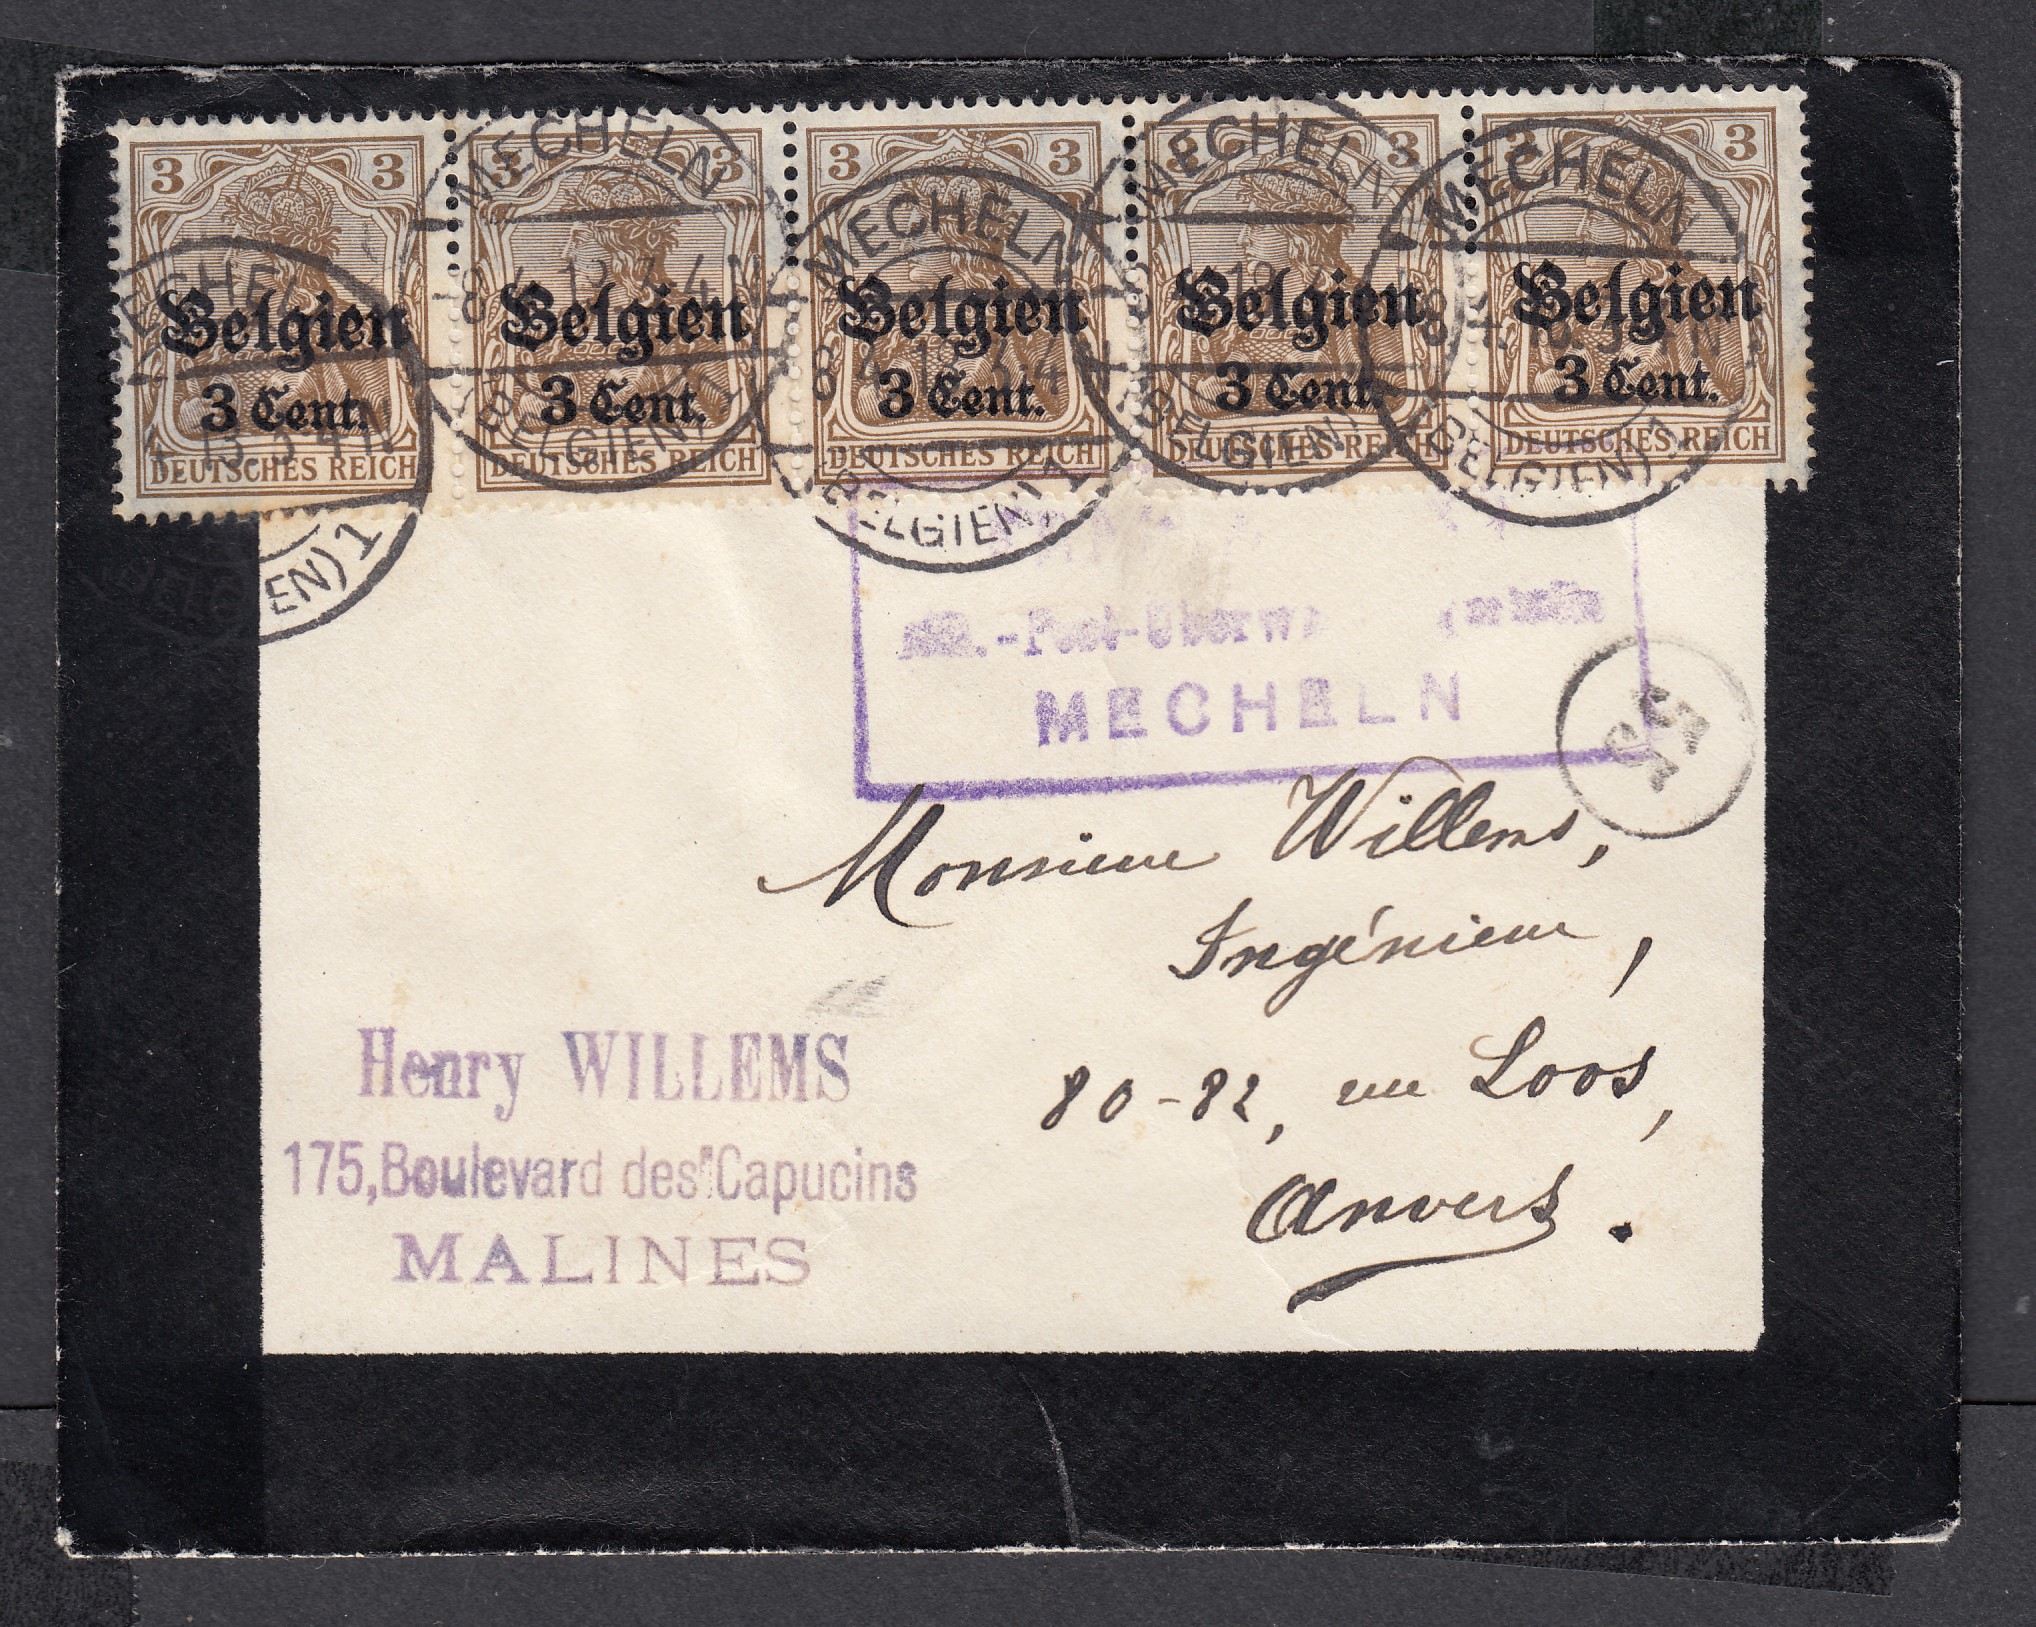 3 3 3 3 3 3 3 3 3 3
MECHELN MECHELN MECHELN MECHELN
Belgien Belgien Belgien Belgien Belgien
3 Cent. 3 Cent. 3 Cent. 3 Cent. 3 Cent.
DEUTSCHES REICH DEUTSCHES REICH DEUTSCHES REICH DEUTSCHES REICH DEUTSCHES REICH
EN) 1 (BELGIEN) 1 (BELGIEN) 1 (BELGIEN) (BELGIEN) 1
MECHELN
Monsieur Willems,
Ingénieur,
80-82, rue Loos,
Anvers.
Henry WILLEMS
175, Boulevard des Capucins
MALINES